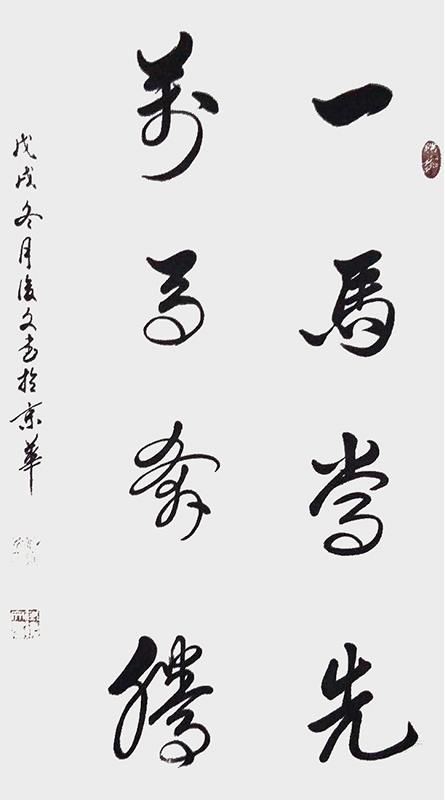 一馬當先
萬馬奔騰
戊戌冬月俊文书於京華